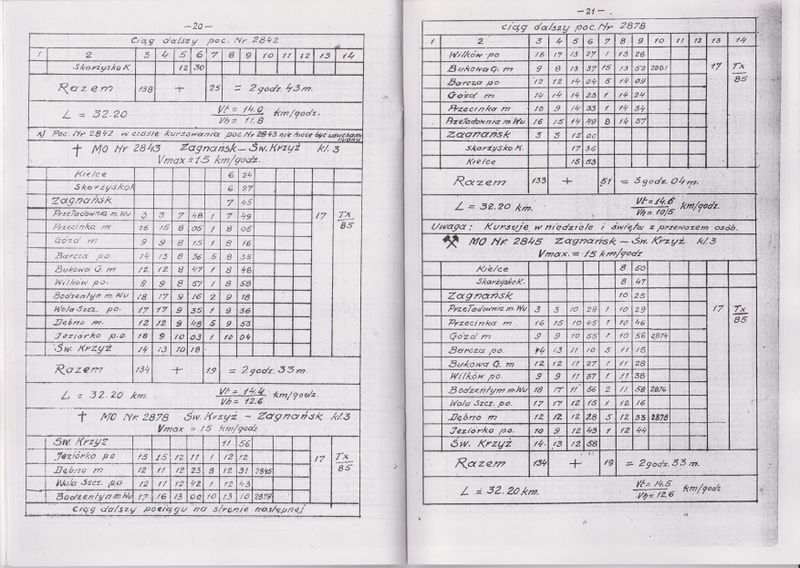 —20—
Ciąg dalszy poc. Nr 2842
1 2 3 4 5 6 7 8 9 10 11 12 13 14
Skarżysko K. 12 30
Razem 138 + 25 = 2 godz. 43 m.
L = 32.20 Vt = 14.0 km/godz.
Vh = 11.8
x) Poc. Nr 2842 w czasie kursowania poc. Nr 2843 nie może być uruchamiany
† MO Nr 2843 Zagnańsk – Św. Krzyż kl. 3
Vmax = 15 km/godz.
Kielce 6 24
Skarżysko K 6 27
Zagnańsk 7 45
Przeładownia m. Wu 3 3 7 48 1 7 49 17 Tx
Przecinka m 16 15 8 05 1 8 06 85
Gózd m 9 9 8 15 1 8 16
Barcza po 14 13 8 36 5 8 35
Bukowa G. m 12 12 8 47 1 8 48
Wilków po. 9 9 8 57 1 8 58
Bodzentyn m. Wu 18 17 9 16 2 9 18
Wola Szcz. po. 17 17 9 35 1 9 36
Dębno m. 12 12 9 48 5 9 53
Jeziórko p.o. 18 9 10 03 1 10 04
Św. Krzyż 14 13 10 18
Razem 134 + 19 = 2 godz. 33 m.
L = 32.20 km. Vt = 14.4 km/godz.
Vh = 12.6
† MO Nr 2878 Św. Krzyż – Zagnańsk kl. 3
Vmax = 15 km/godz.
Św. Krzyż 11 56
Jeziórko po 15 15 12 11 1 12 12 17 Tx
Dębno m 12 11 12 23 8 12 31 2845 85
Wola Szcz. po 12 11 12 42 1 12 43
Bodzentyn m. Wu 17 16 13 00 10 13 10 2879
Ciąg dalszy pociągu na stronie następnej
—21—
Ciąg dalszy poc. Nr 2878
1 2 3 4 5 6 7 8 9 10 11 12 13 14
Wilków po 18 17 13 27 1 13 28
Bukowa G. m 9 8 13 37 15 13 52 2881 17 Tx
Barcza po 12 12 14 04 5 14 09 85
Gózd m 14 14 14 23 1 14 24
Przecinka m 10 9 14 33 1 14 34
Przeładownia m. Wu 16 15 14 49 8 14 57
Zagnańsk 3 3 15 00
Skarżysko K. 17 36
Kielce 15 53
Razem 133 + 51 = 3 godz. 04 m.
L = 32.20 km. Vt = 14.6 km/godz.
Vh = 10/5
Uwaga: Kursuje w niedziele i święta z przewozem osób.
MO Nr 2845 Zagnańsk – Św. Krzyż kl. 3
Vmax. = 15 km/godz
Kielce 8 50
Skarżysko K. 8 47
Zagnańsk 10 25
Przeładownia m. Wu 3 3 10 28 1 10 29 17 Tx
Przecinka m 16 15 10 45 1 10 46 85
Gózd m 9 9 10 55 1 10 56 2874
Barcza po. 14 13 11 10 5 11 15
Bukowa G. m 12 12 11 27 1 11 28
Wilków po 9 9 11 37 1 11 38
Bodzentyn m. Wu 18 17 11 56 2 11 58 2876
Wola Szcz. po. 17 17 12 15 1 12 16
Dębno m 12 12 12 28 5 12 33 2878
Jeziórko po. 10 9 12 43 1 12 44
Św. Krzyż 14 13 12 58
Razem 134 + 19 = 2 godz. 33 m.
L = 32.20 km. Vt = 14.5 km/godz
Vh = 12.6